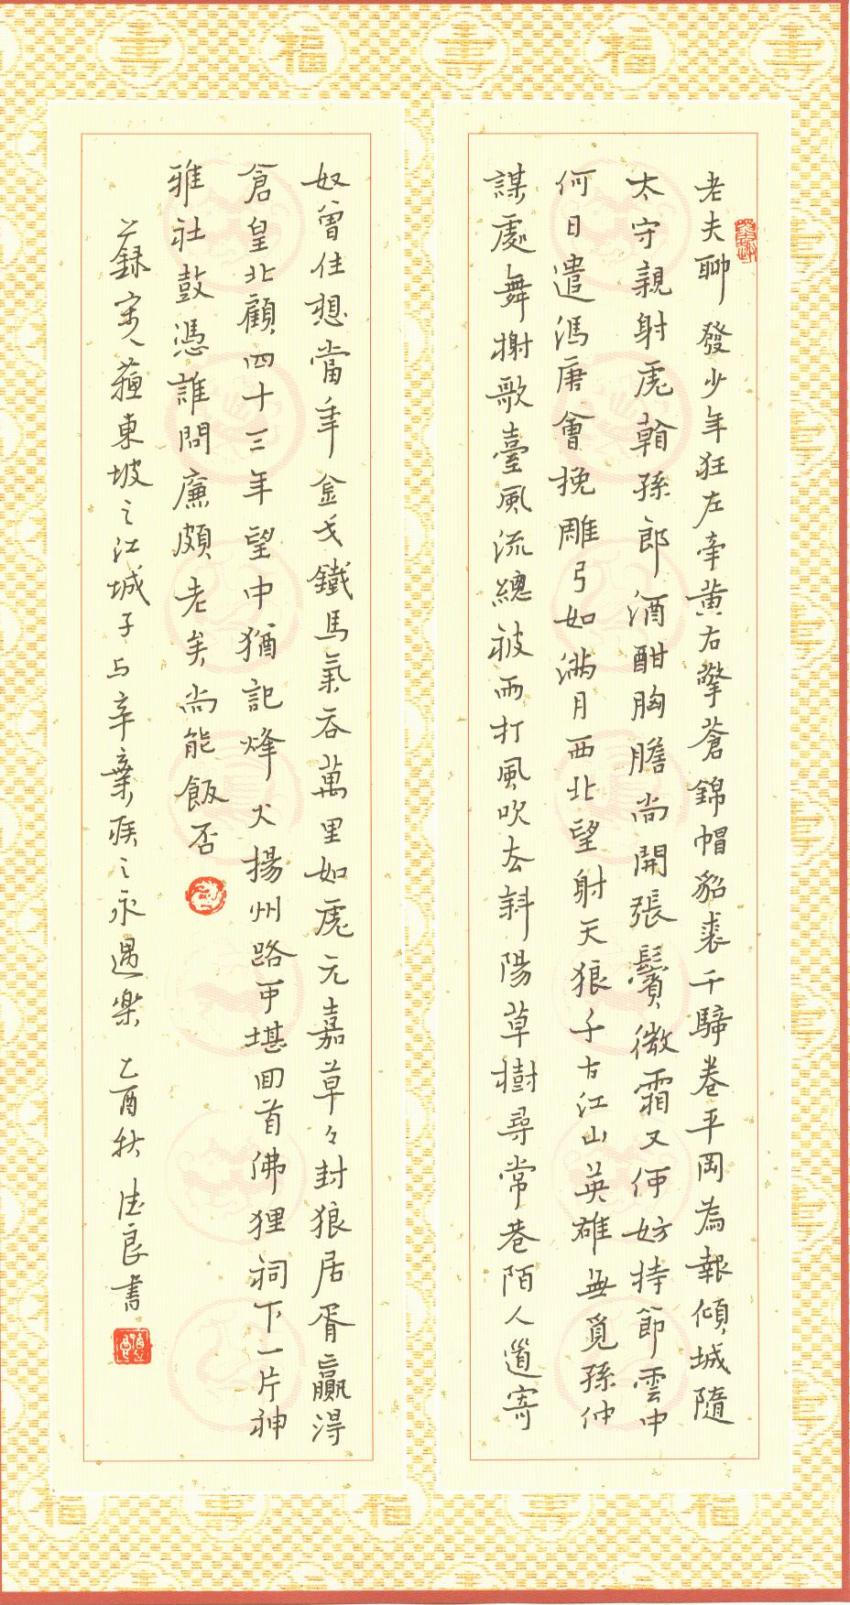 老夫聊發少年狂左牽黄右擎蒼錦帽貂裘千騎卷平岡為報傾城隨
太守親射虎看孫郎酒酣胸膽尚開張鬢微霜又何妨持節雲中
何日遣馮唐會挽雕弓如滿月西北望射天狼千古江山英雄無覓孫仲
謀處舞榭歌臺風流總被雨打風吹去斜陽草樹尋常巷陌人道寄
奴曾住想當年金戈鐵馬氣吞萬里如虎元嘉草々封狼居胥贏得
倉皇北顧四十三年望中猶記烽火揚州路可堪回首佛狸祠下一片神
雅社鼓憑誰問廉頗老矣尚能飯否
錄宋人蘇東坡之江城子与辛棄疾之永遇樂 乙酉秋 德良書